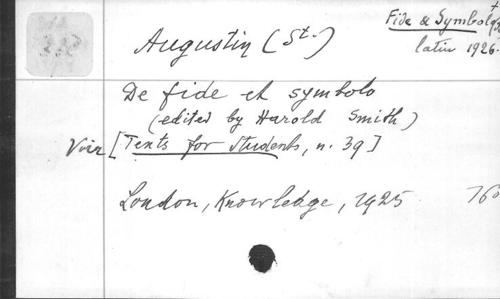 Augustin (St.)
Fide & Symbol
latin 1926.
De fide et symbolo
(edited by Harold Smith)
Voir [Texts for students, n. 39]
London, Knowledge, 1925